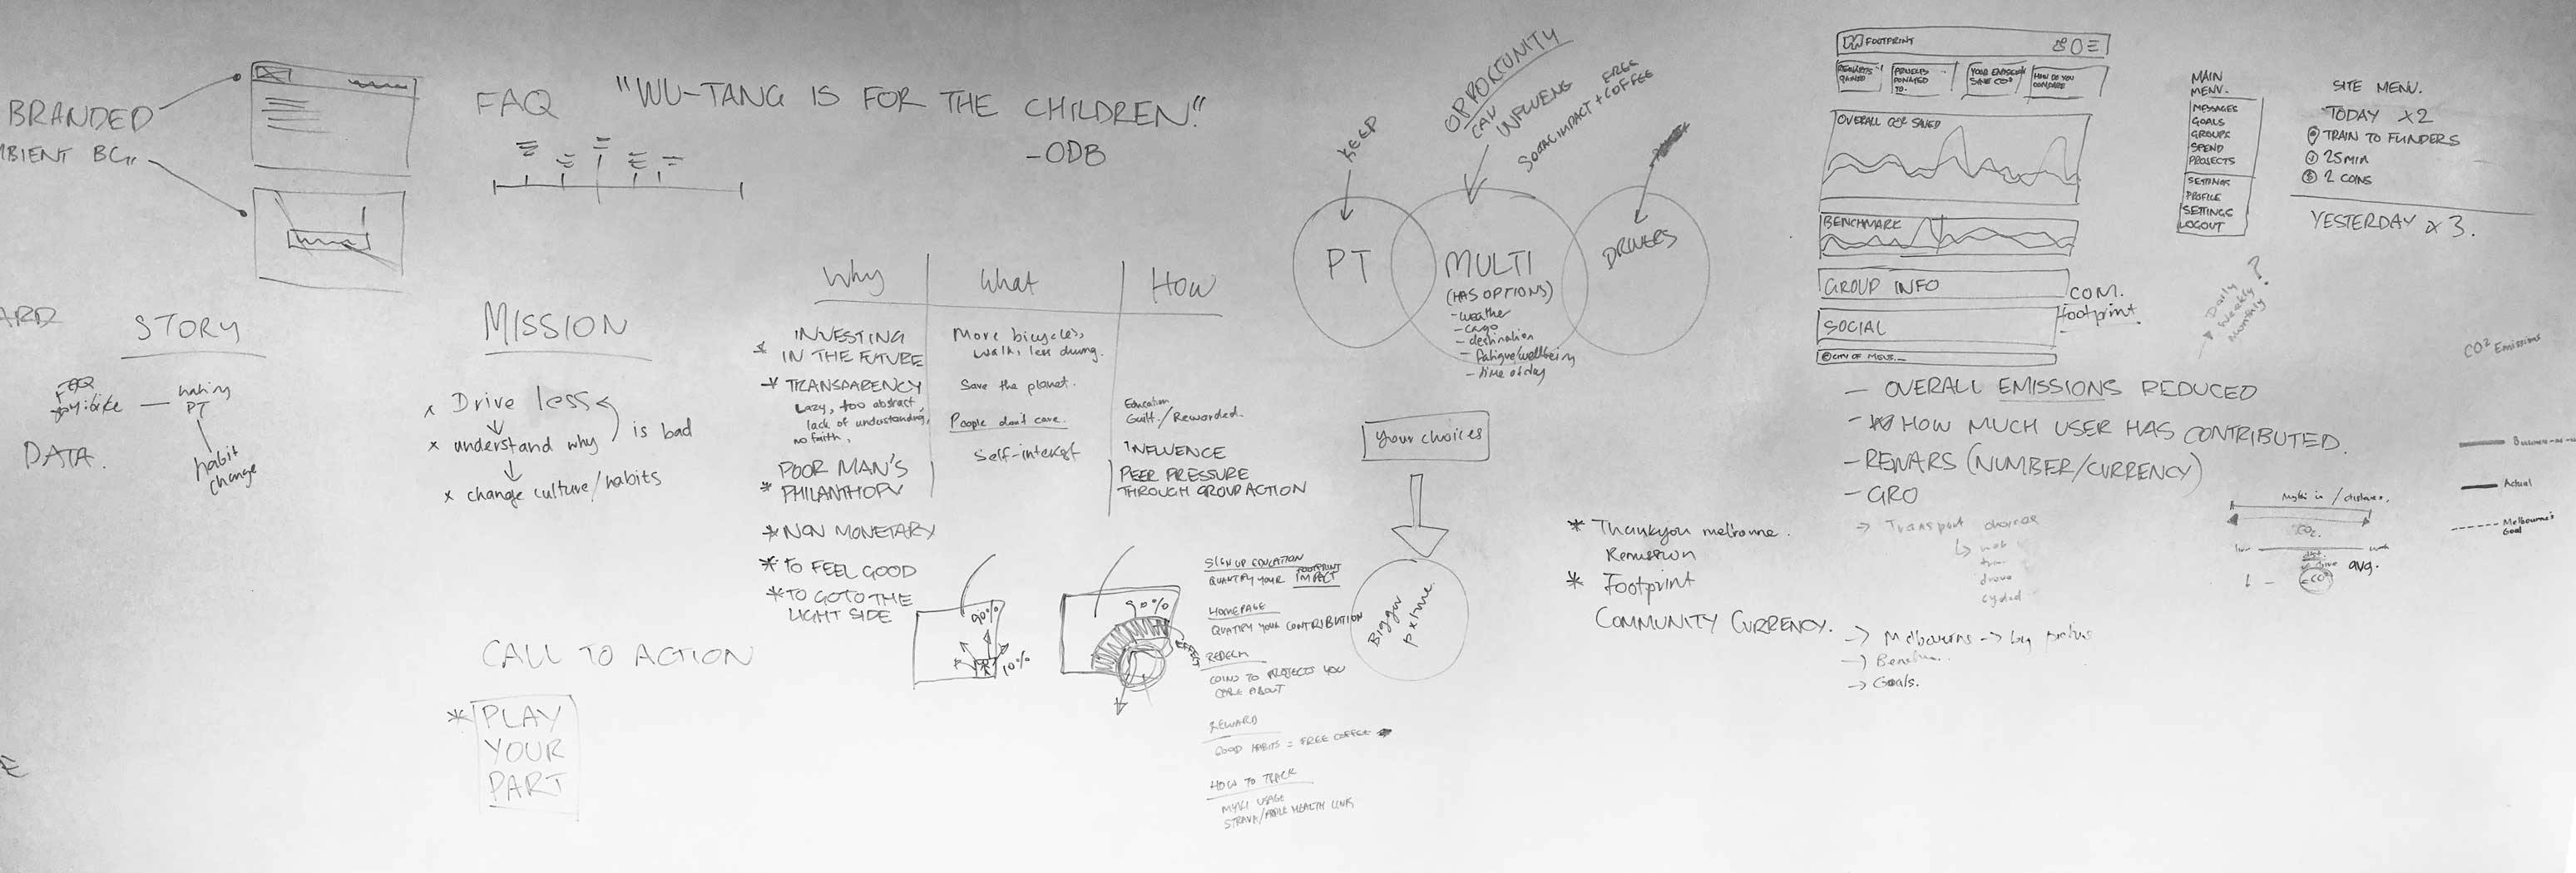 BRANDED
BG
FAQ
"WU-TANG IS FOR THE CHILDREN."
-ODB
STORY
making
PT
habit
change
DATA.
MISSION
x Drive less
x understand why
is bad
x change culture/habits
CALL TO ACTION
* PLAY
YOUR
PART
Why
What
How
* INVESTING
IN THE FUTURE
* TRANSPARENCY
Lazy, too abstract,
lack of understanding,
no faith,
POOR MAN'S
* PHILANTHOPY
* NON MONETARY
* TO FEEL GOOD
* TO GO TO THE
LIGHT SIDE
More bicycles,
walk, less driving.
Save the planet.
People don't care.
Self-interest
Education
Guilt/Rewarded.
INFLUENCE
PEER PRESSURE
THROUGH GROUP ACTION
90%
10%
90%
SIGN UP EDUCATION
FOOTPRINT
QUANTIFY YOUR IMPACT
HOMEPAGE
QUATIFY YOUR CONTRIBUTION
REDEEM
COINS TO PROJECTS YOU
CARE ABOUT
REWARD
GOOD HABITS = FREE COFFEE
HOW TO TRACK
MYKI USAGE
STRAVA/APPLE HEALTH LINK
KEEP
OPPORTUNITY
CAN
INFLUENS
SOCIAL IMPACT + COFFEE
FREE
PT
MULTI
(HAS OPTIONS)
- weather
- cargo
- destination
- fatigue/wellbeing
- time of day
DRIVERS
your choices
Bigger
picture
* Thankyou melbourne.
Remission
* Footprint
COMMUNITY CURRENCY.
FOOTPRINT
REWARDS
GAINED
PROJECTS
DONATED
TO.
YOUR EMISSION
HOW DO YOU
COMPARE
OVERALL CO2 SAVED
BENCHMARK
GROUP INFO
SOCIAL
COM.
footprint.
- OVERALL EMISSIONS REDUCED
- HOW MUCH USER HAS CONTRIBUTED.
- REWARS (NUMBER/CURRENCY)
- GRO
-> Transport choices
cycled
-> Melbourns ->
-> Goals.
MAIN
MENU.
MESSAGES
GOALS
GROUPS
SPEND
PROJECTS
SETTINGS
PROFILE
SETTINGS
LOGOUT
SITE MENU.
TODAY x2
TRAIN TO FUNDERS
25 MIN
2 COINS
YESTERDAY x 3.
Daily
weekly
monthly
?
CO2 Emissions
Actual
Melbourne's
Goal
CO2
avg.